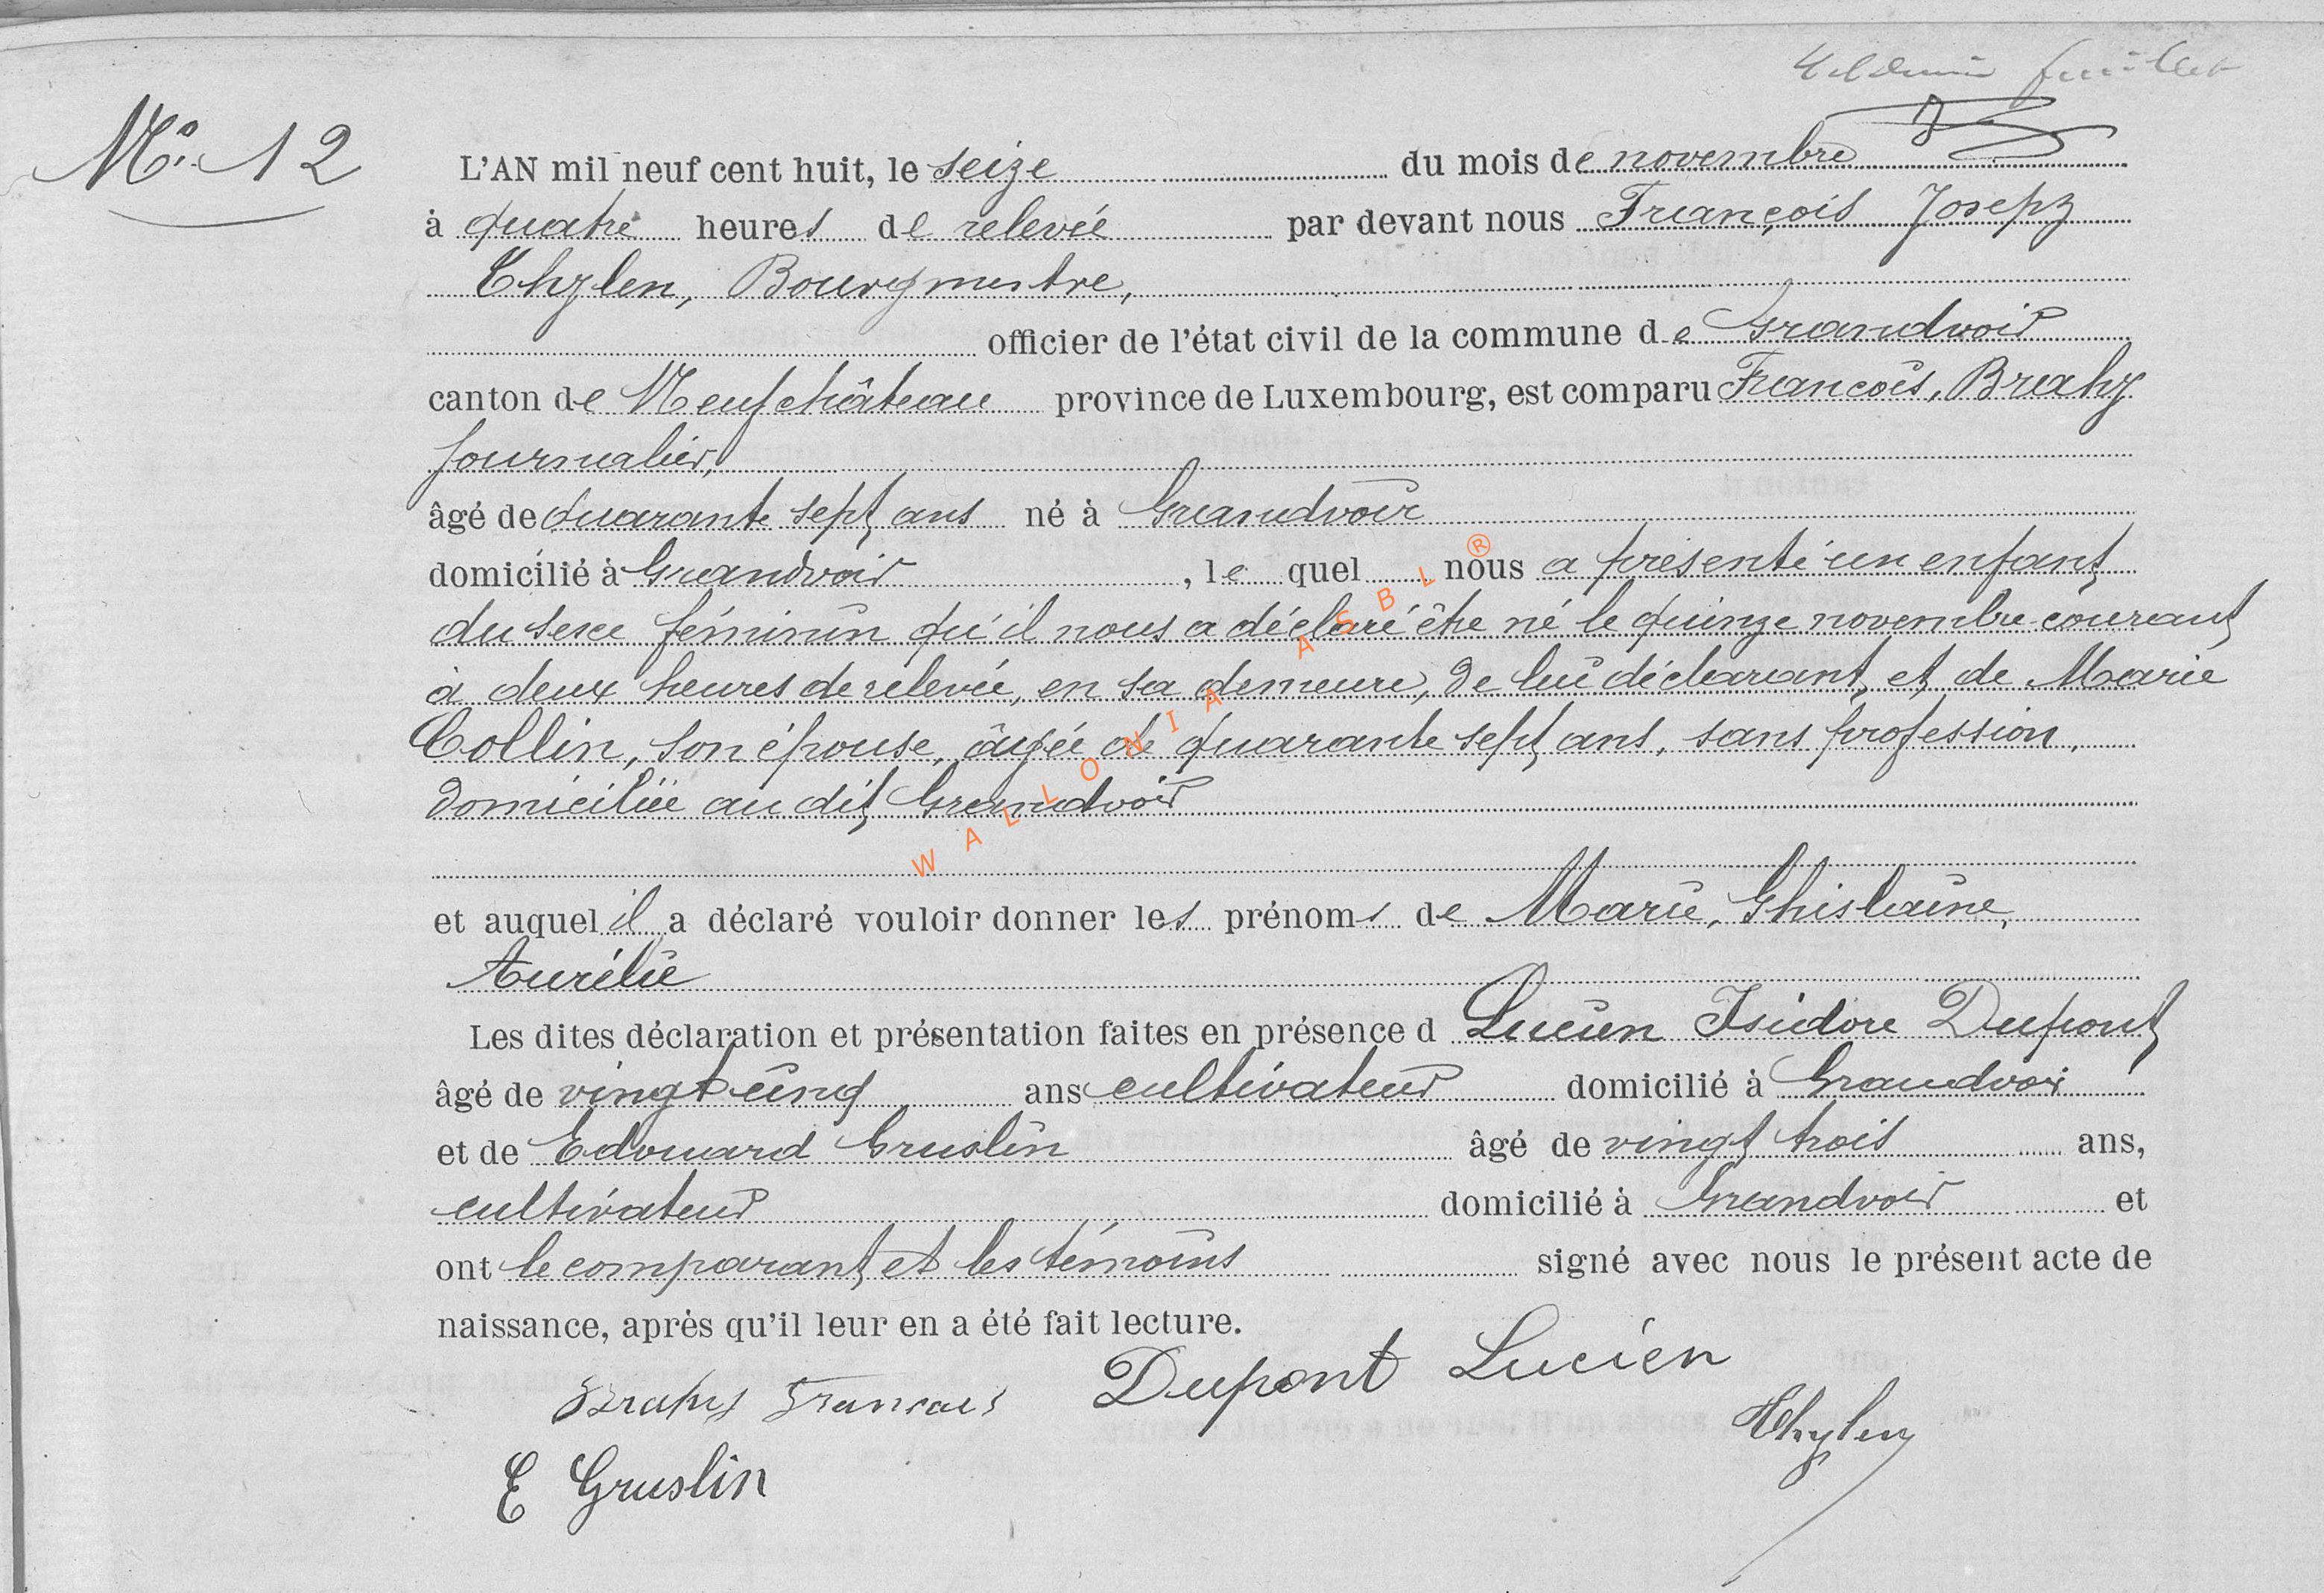 feuillet
N° 12
L'AN mil neuf cent huit, le seize du mois de novembre
à quatre heures de relevée par devant nous François Joseph
Thylen, Bourgmestre,
officier de l'état civil de la commune de Grandvoir
canton de Neufchâteau province de Luxembourg, est comparu François, Brahy
journalier,
âgé de quarante sept ans né à Grandvoir
domicilié à Grandvoir, le quel nous a présenté un enfant
du sexe féminin qu'il nous a déclaré être né le quinze novembre courant
à deux heures de relevée, en sa demeure, de lui déclarant, et de Marie
Collin, son épouse, âgée de quarante sept ans, sans profession,
domiciliée au dit Grandvoir
et auquel il a déclaré vouloir donner les prénoms de Marie, Ghislaine,
Aurélie
Les dites déclaration et présentation faites en présence d Lucien Isidore Dupont
âgé de vingt cinq ans cultivateur domicilié à Grandvoir
et de Edouard Gruslin âgé de vingt trois ans,
cultivateur domicilié à Grandvoir et
ont le comparant et les témoins signé avec nous le présent acte de
naissance, après qu'il leur en a été fait lecture.
Brahy Francois Dupont Lucien
Thylen
E Gruslin
WALLONIA ASBL ®